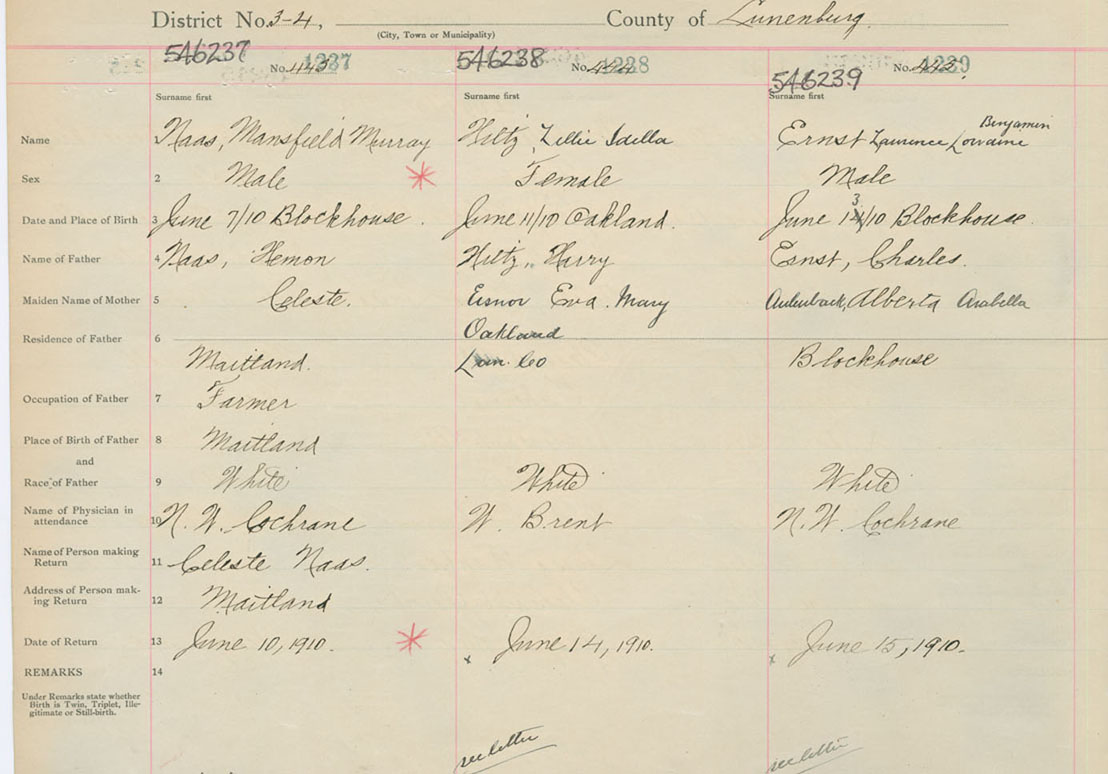 District No. 3-4, County of Lunenburg
(City, Town or Municipality)
546237 No. 1237 546238 No. 1238 546239 No. 1239
Surname first Surname first Surname first
Benjamin
Name 1 Naas, Mansfield Murray Hiltz, Zellie Idella Ernst Laurence Lorraine
Sex 2 Male Female Male
Date and Place of Birth 3 June 7/10 Blockhouse. June 11/10 Oakland. June 13/10 Blockhouse.
Name of Father 4 Naas, Hemon Hiltz, Harry Ernst, Charles.
Maiden Name of Mother 5 Celeste. Eisnor Eva. Mary Aulenback, Alberta Arabella
Oakland
Residence of Father 6 Maitland. Lun. Co Blockhouse
Occupation of Father 7 Farmer
Place of Birth of Father 8 Maitland
and
Race of Father 9 White White White
Name of Physician in attendance 10 N. W. Cochrane W. Brent N. W. Cochrane
Name of Person making Return 11 Celeste Naas.
Address of Person making Return 12 Maitland
Date of Return 13 June 10, 1910. x June 14, 1910. x June 15, 1910.
REMARKS 14
Under Remarks state whether
Birth is Twin, Triplet, Ille-
gitimate or Still-birth.
see letter see letter